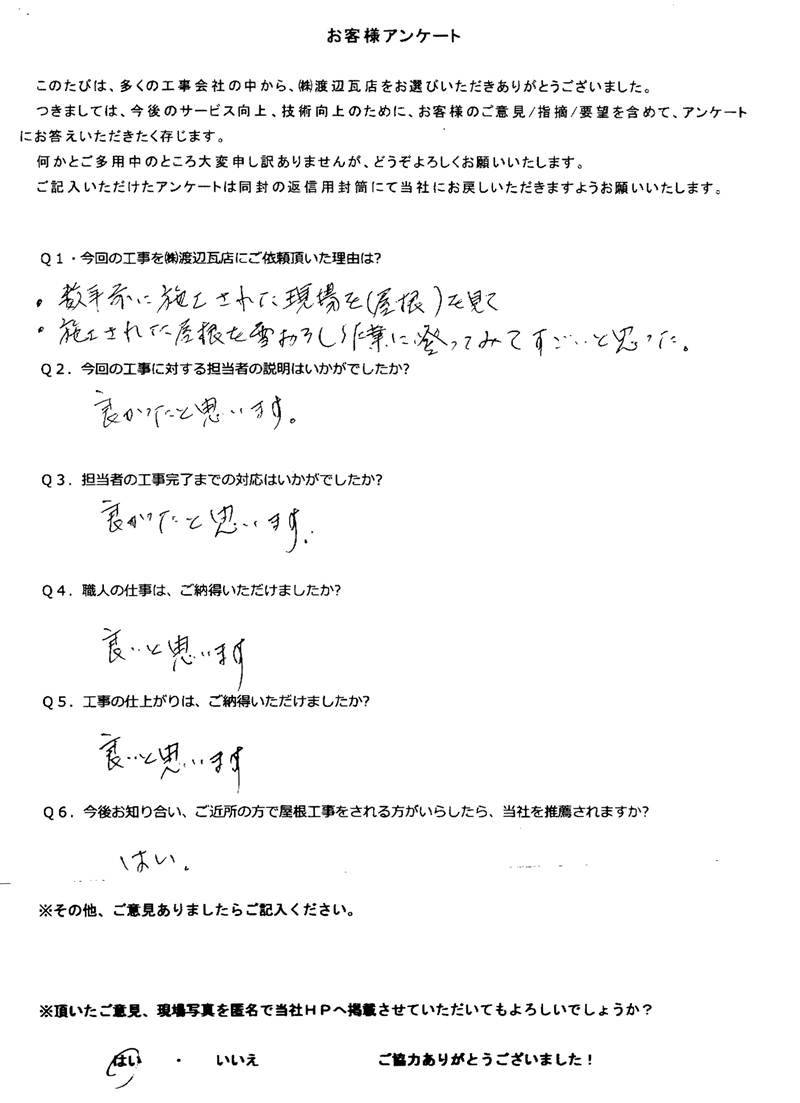 お客様アンケート
このたびは、多くの工事会社の中から、㈱渡辺瓦店をお選びいただきありがとうございました。
つきましては、今後のサービス向上、技術向上のために、お客様のご意見/指摘/要望を含めて、アンケート
にお答えいただきたく存じます。
何かとご多用中のところ大変申し訳ありませんが、どうぞよろしくお願いいたします。
ご記入いただけたアンケートは同封の返信用封筒にて当社にお戻しいただきますようお願いいたします。
Q1・今回の工事を㈱渡辺瓦店にご依頼頂いた理由は?
・数年前に施工された現場を(屋根)を見て
・施工された屋根を雪おろし作業に登ってみてすごいと思った。
Q2．今回の工事に対する担当者の説明はいかがでしたか?
良かったと思います。
Q3．担当者の工事完了までの対応はいかがでしたか?
良かったと思います.
Q4．職人の仕事は、ご納得いただけましたか?
良いと思います
Q5．工事の仕上がりは、ご納得いただけましたか?
良いと思います
Q6．今後お知り合い、ご近所の方で屋根工事をされる方がいらしたら、当社を推薦されますか?
はい。
※その他、ご意見ありましたらご記入ください。
※頂いたご意見、現場写真を匿名で当社HPへ掲載させていただいてもよろしいでしょうか？
はい ・ いいえ ご協力ありがとうございました！